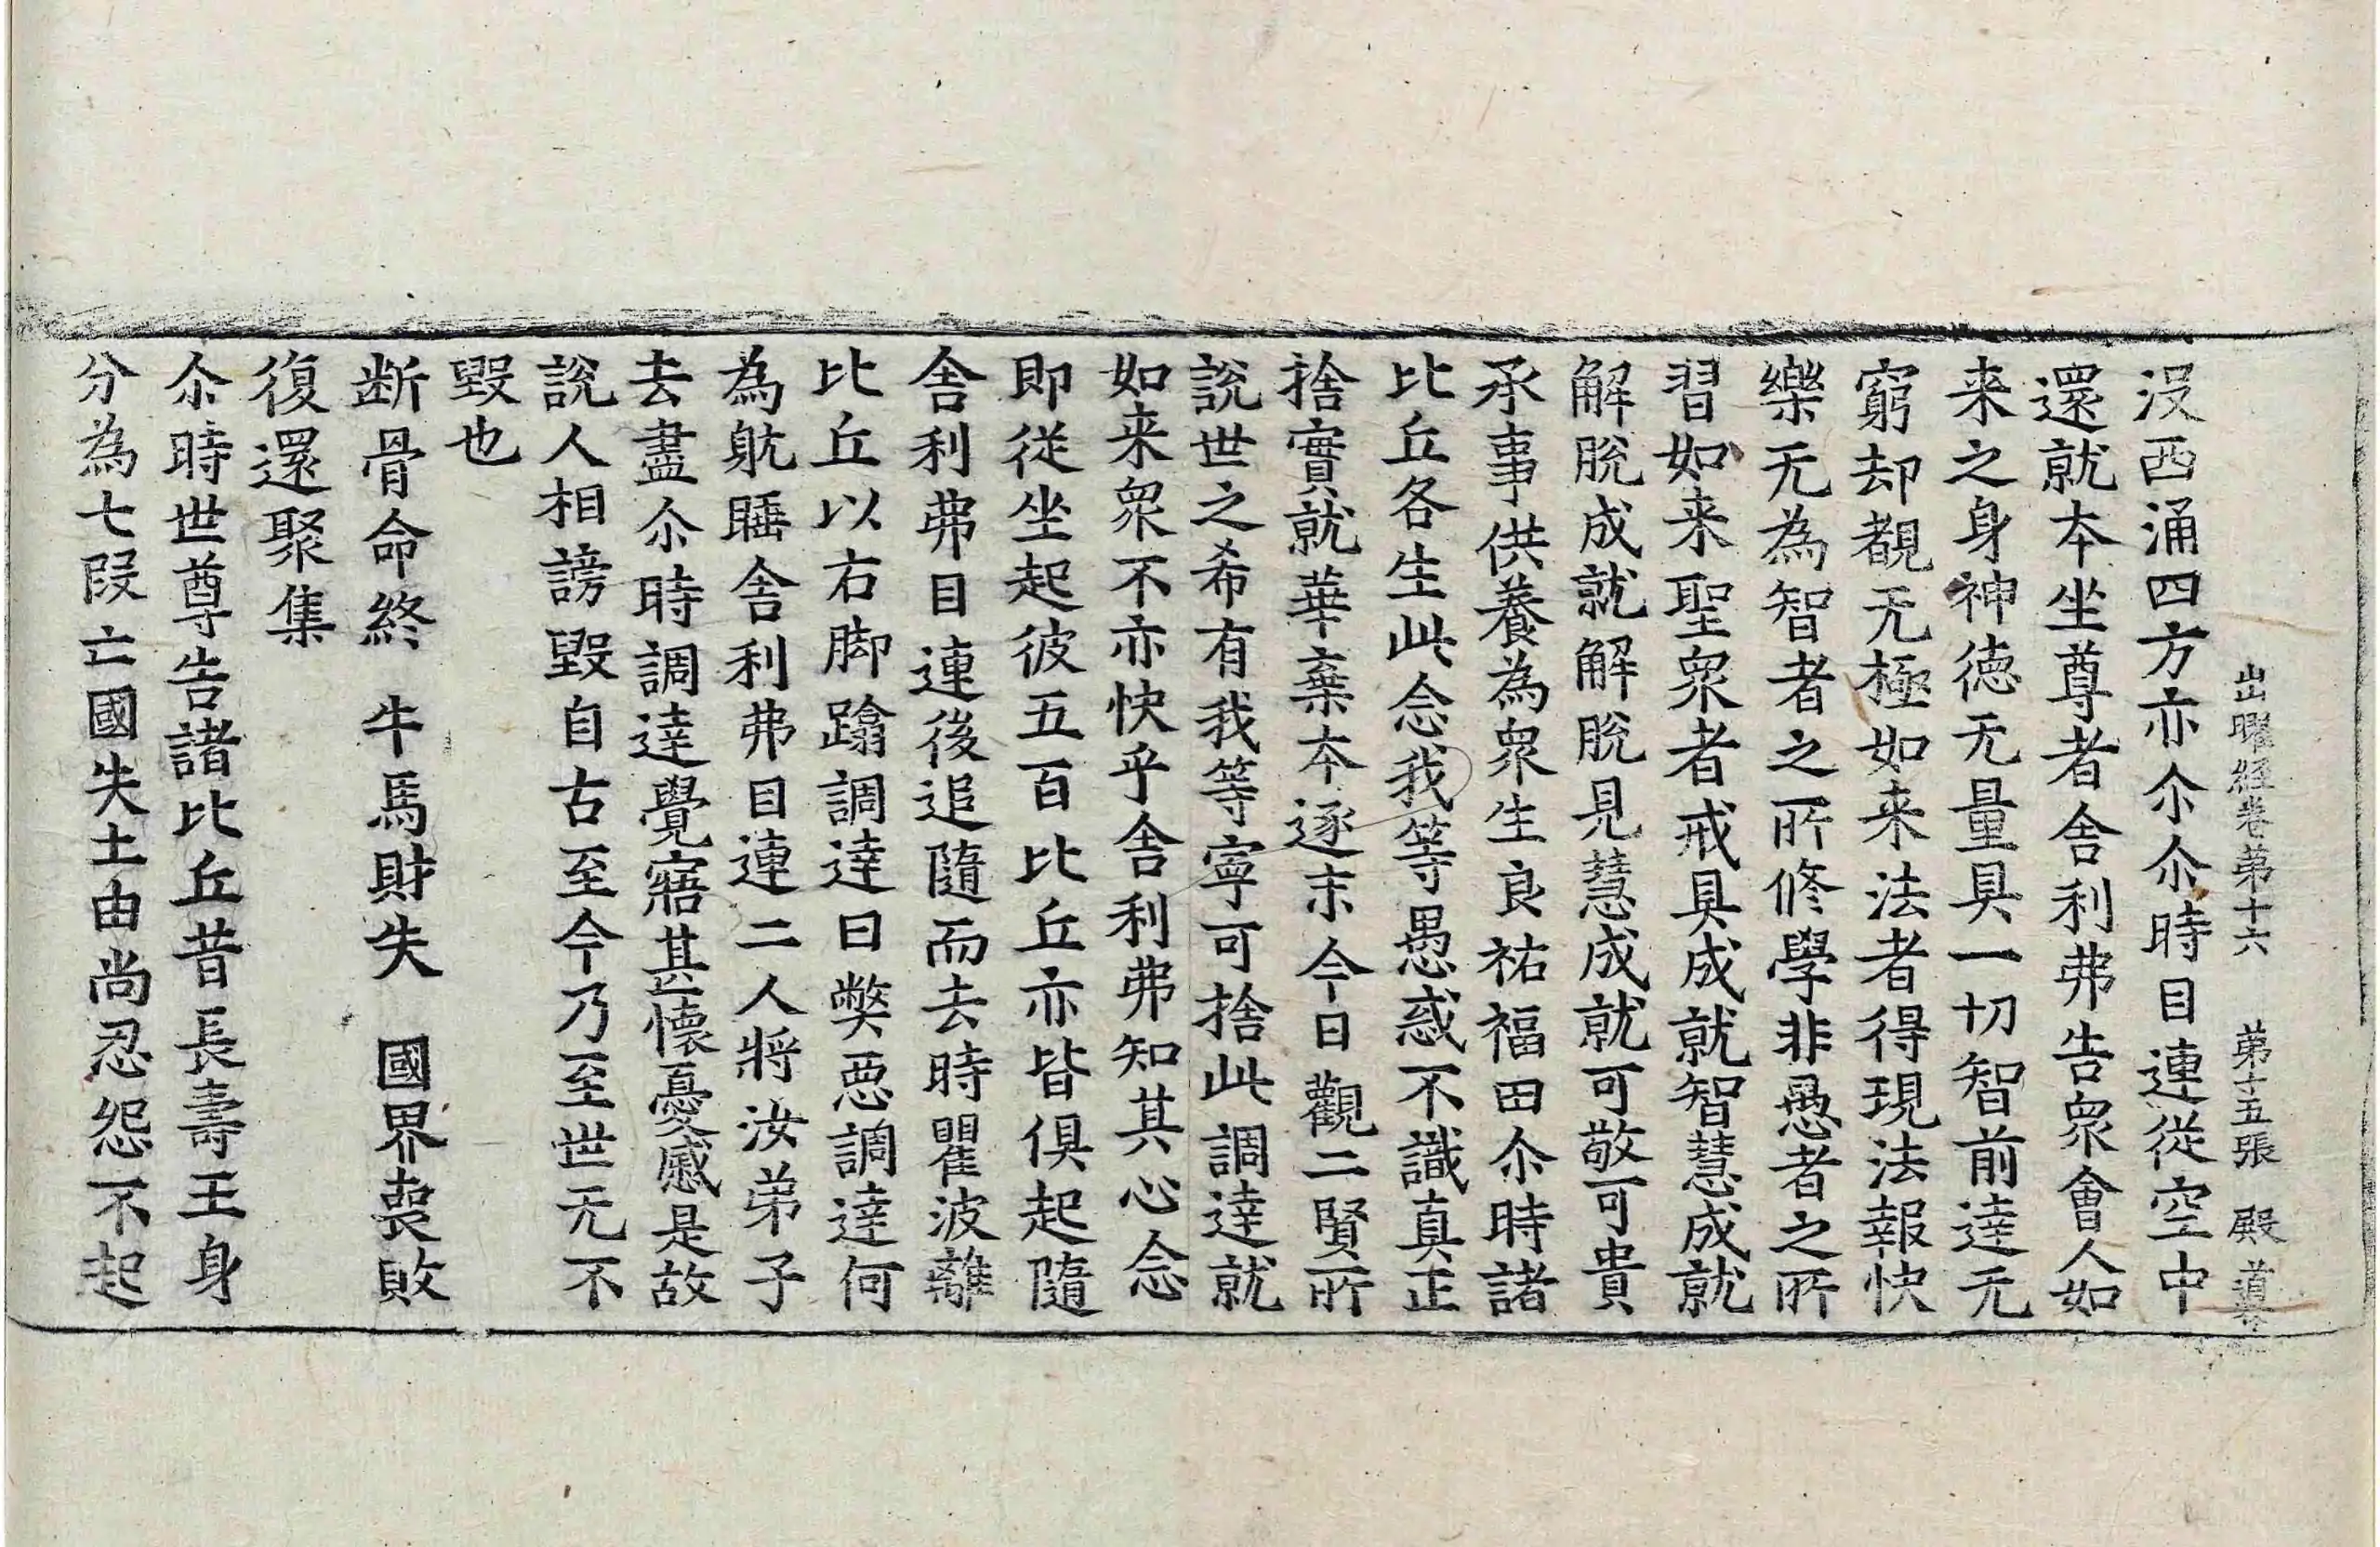 出曜經卷苐十六 苐十五張 殿 道
没西涌四方亦尒尒時目連從空中
還就夲坐尊者舍利弗告衆會人如
来之身神德无量具一切智前達无
窮却覩无極如来法者得現法報快
樂无為智者之所修學非愚者之所
習如来聖衆者戒具成就智慧成就
解脫成就解脫見慧成就可敬可貴
承事供養為衆生良祐福田尒時諸
比丘各生此念我等愚惑不識真正
捨實就華棄夲逐末今日觀二賢所
說世之希有我等寧可捨此調達就
如来衆不亦快乎舍利弗知其心念
即従坐起彼五百比丘亦皆俱起隨
舍利弗目連後追隨而去時瞿波離
比丘以右脚蹹調達曰弊惡調達何
為躭睡舍利弗目連二人將汝弟子
去盡尒時調達覺寤甚懷憂慼是故
說人相謗毀自古至今乃至世无不
毀也
断骨命終 牛馬財失 國界喪敗
復還聚集
尒時世尊告諸比丘昔長壽王身
分為七段亡國失土由尚忍怨不起